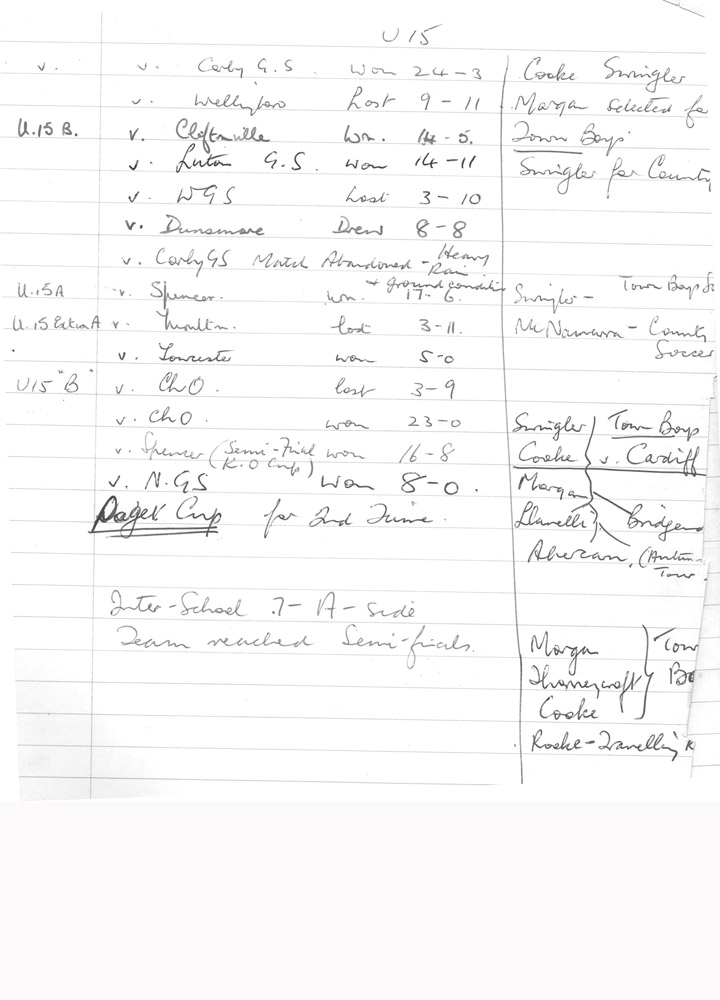 U15
v. v. Corby G.S. Won 24-3 Cooke Swingler
v. Wellingboro Lost 9-11 Morgan selected for
U.15 B. v. Cliftonville Won. 14-5. Town Boys
v. Luton G.S. won 14-11 Swingler for County
v. WGS Lost 3-10
v. Dunsmore Drew 8-8
v. Corby GS Match Abandoned - Heavy Rain
+ ground conditions
U.15A v. Spencer. won. 17-6. Swingler - Town Boys
U.15 Extra A v. Moulton. lost 3-11. McNamara - County
v. Towcester won 5-0 Soccer
U15 "B" v. ChO. lost 3-9
v. ChO. won 23-0 Swingler Town Boys
v. Spencer (Semi-Final K.O Cup) won 16-8 Cooke v. Cardiff
v. N.GS won 8-0. Morgan
Paget Cup for 2nd Time. Llanelli Bridgend
Aherran. (Autumn Tour.
Inter-School 7-A-side
Team reached Semi-finals. Morgan Town
Thorneycroft Bo
Cooke
Roake - Travelling